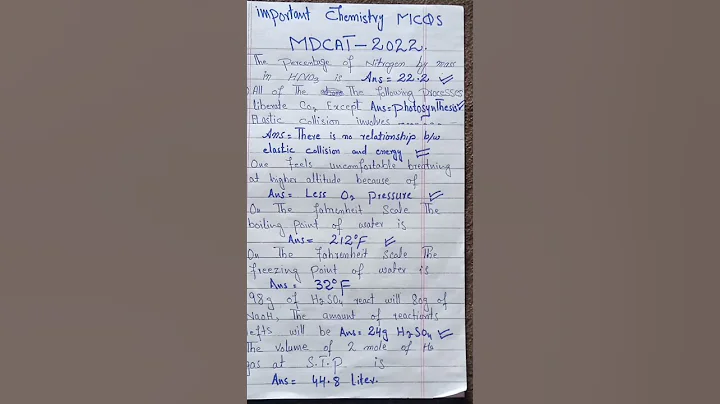 important Chemistry MCQS
MDCAT-2022.
The Percentage of Nitrogen by mass
in HNO3 is Ans = 22.2
All of The The following processes
liberate Co2 Except Ans = photosynthesis
Elastic collision involves
Ans = There is no relationship b/w
elastic collision and energy
One feels uncomfortable breathing
at higher altitude because of
Ans = Less O2 pressure
On The fahrenheit Scale The
boiling point of water is
Ans = 212°F
On The fahrenheit Scale The
freezing Point of water is
Ans = 32°F
98g of H2SO4 react will 80g of
NaOH, The amount of reactants
lefts will be Ans = 24g H2SO4
The volume of 2 mole of
gas at S.T.P is
Ans = 44.8 liter.